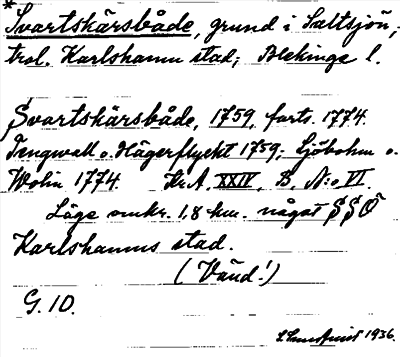 *
Svartskärsbåde, grund i Saltsjön,
trol. Karlshamn stad; Blekinge l.
Svartskärsbåde, 1759, forts. 1774.
Tengwall o. Hägerflycht 1759; Sjöbohm o.
Wolin 1774. Kr. A. XXIV, B, N:o VI.
Läge omkr. 1,8 km. något SSO
Karlshamns stad.
(Vänd!)
G. 10.
S. Lundquist 1936.